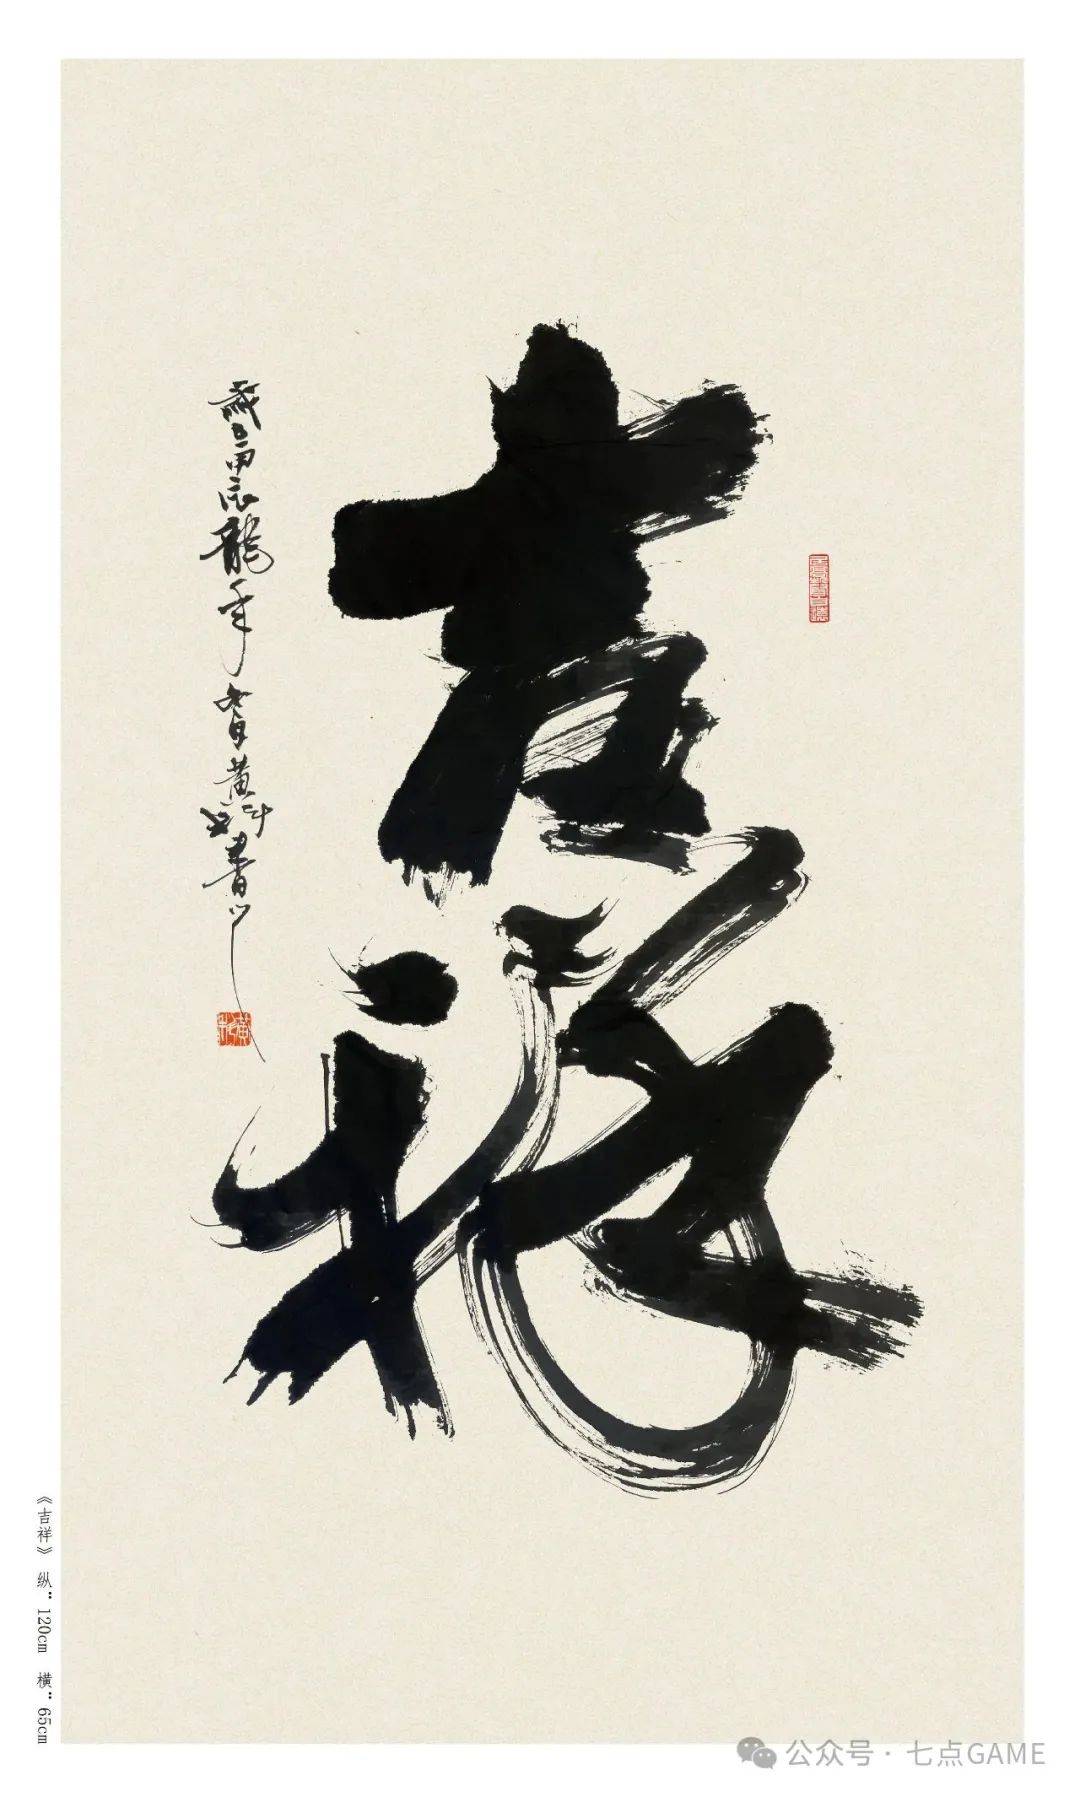 吉祥
岁在甲辰龙年
黄
书
《吉祥》 纵：120cm 横：65cm
公众号·七点GAME